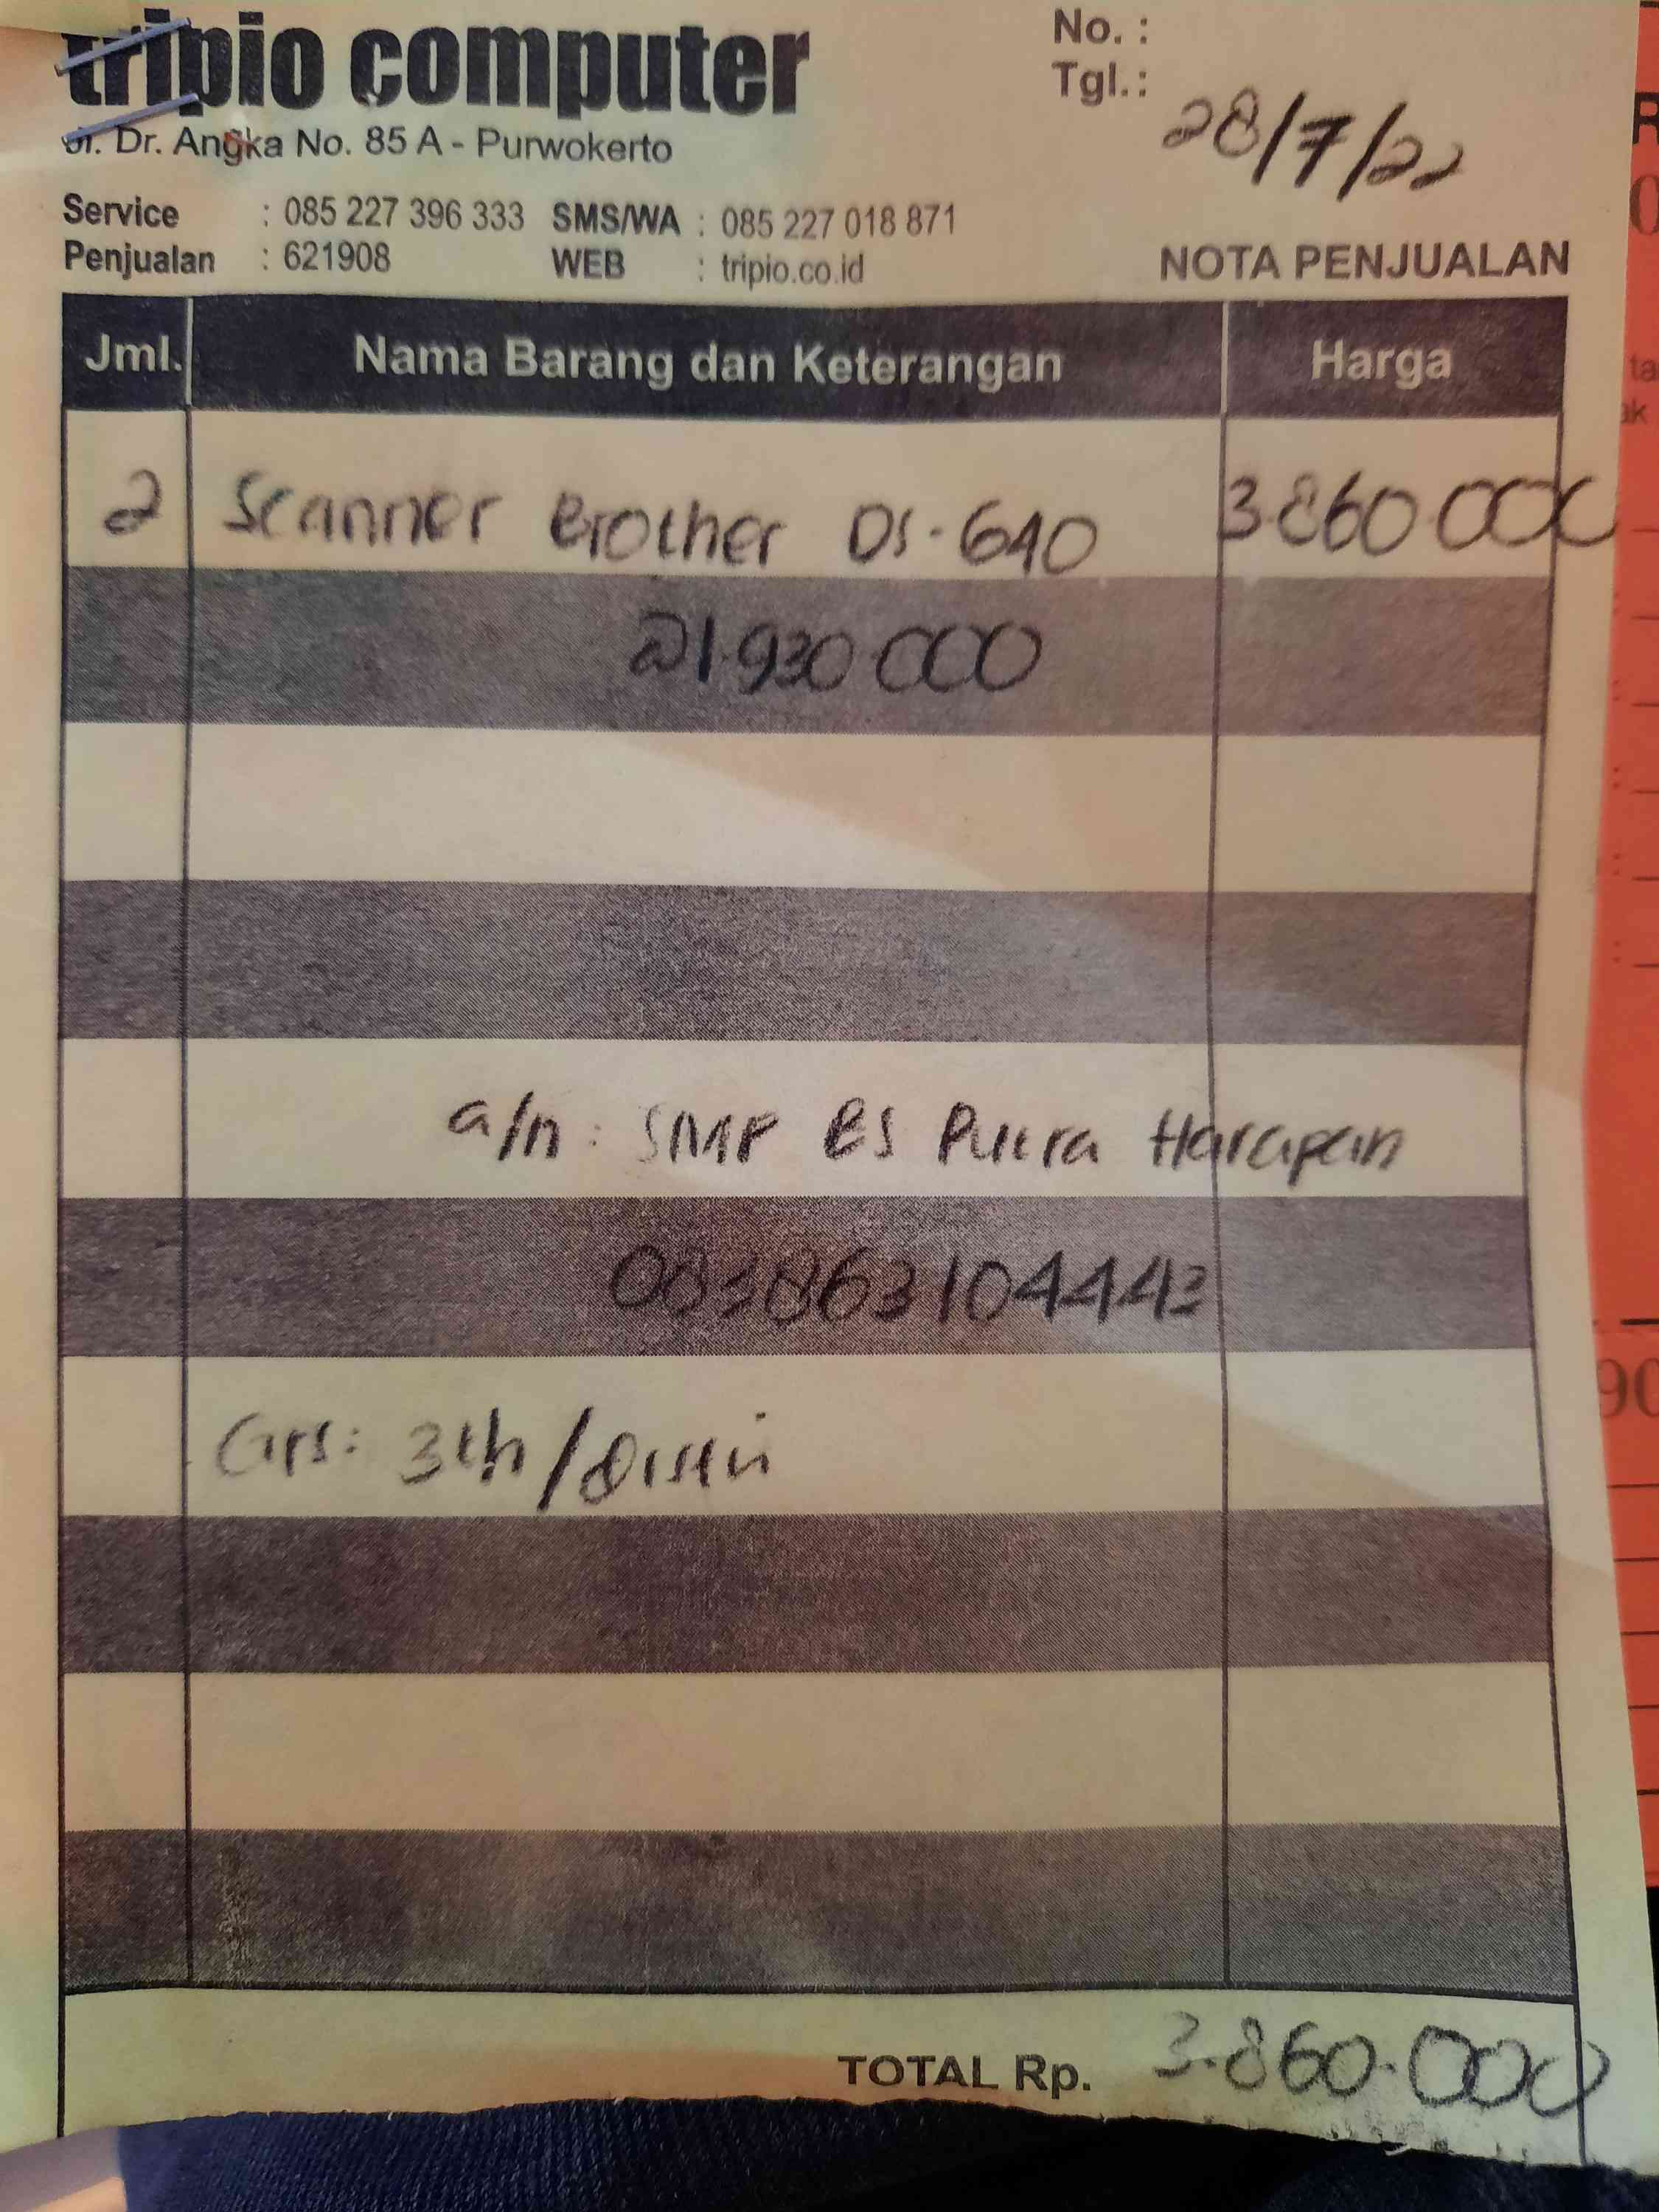 tripio computer
Jl. Dr. Angka No. 85 A - Purwokerto
Service : 085 227 396 333 SMS/WA : 085 227 018 871
Penjualan : 621908 WEB : tripio.co.id
No. :
Tgl. : 28/7/22
NOTA PENJUALAN
Jml. Nama Barang dan Keterangan Harga
2 Scanner Brother DS-640 3.860.000
@1.930.000
a/n : SMP BS Putra Harapan
083863104443
Grs: 3th/Distri
TOTAL Rp. 3.860.000